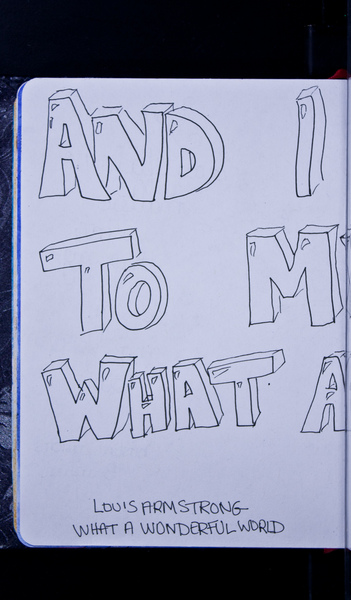 AND I
TO M
WHAT A
LOUIS ARMSTRONG
WHAT A WONDERFUL WORLD